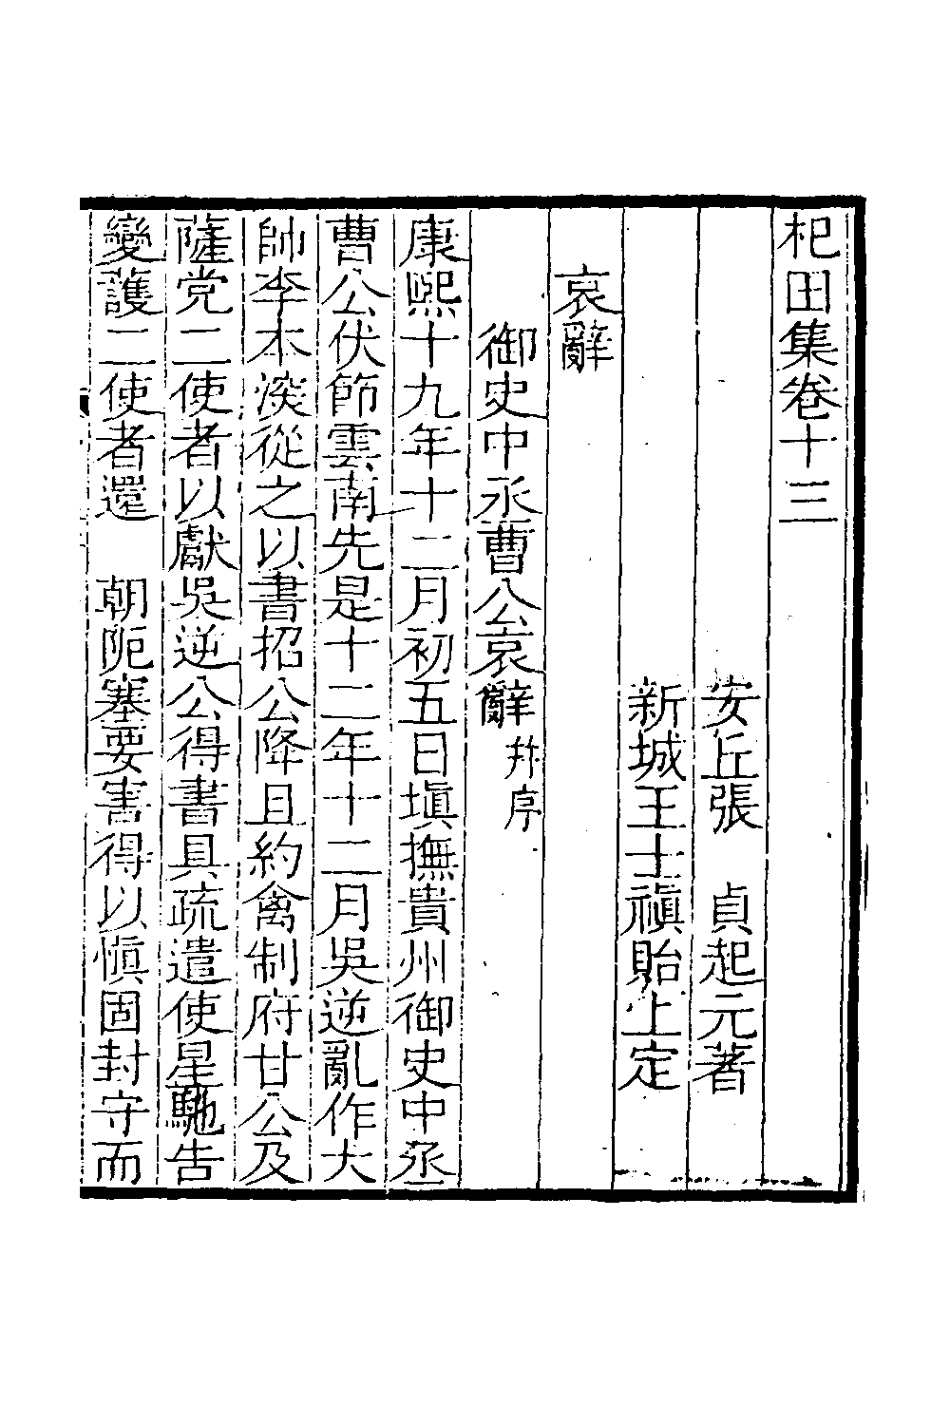 杞田集卷十三
安丘張　貞起元著
新城王士禛貽上定
哀辭
御史中丞曹公哀辭并序
康熙十九年十二月初五日塡撫貴州御史中丞
曹公伏節雲南先是十二年十二月吳逆亂作大
帥李本深從之以書招公降且約禽制府甘公及
薩党二使者以獻吳逆公得書具疏遣使星馳告
變護二使者還　朝阨塞要害得以愼固封守而